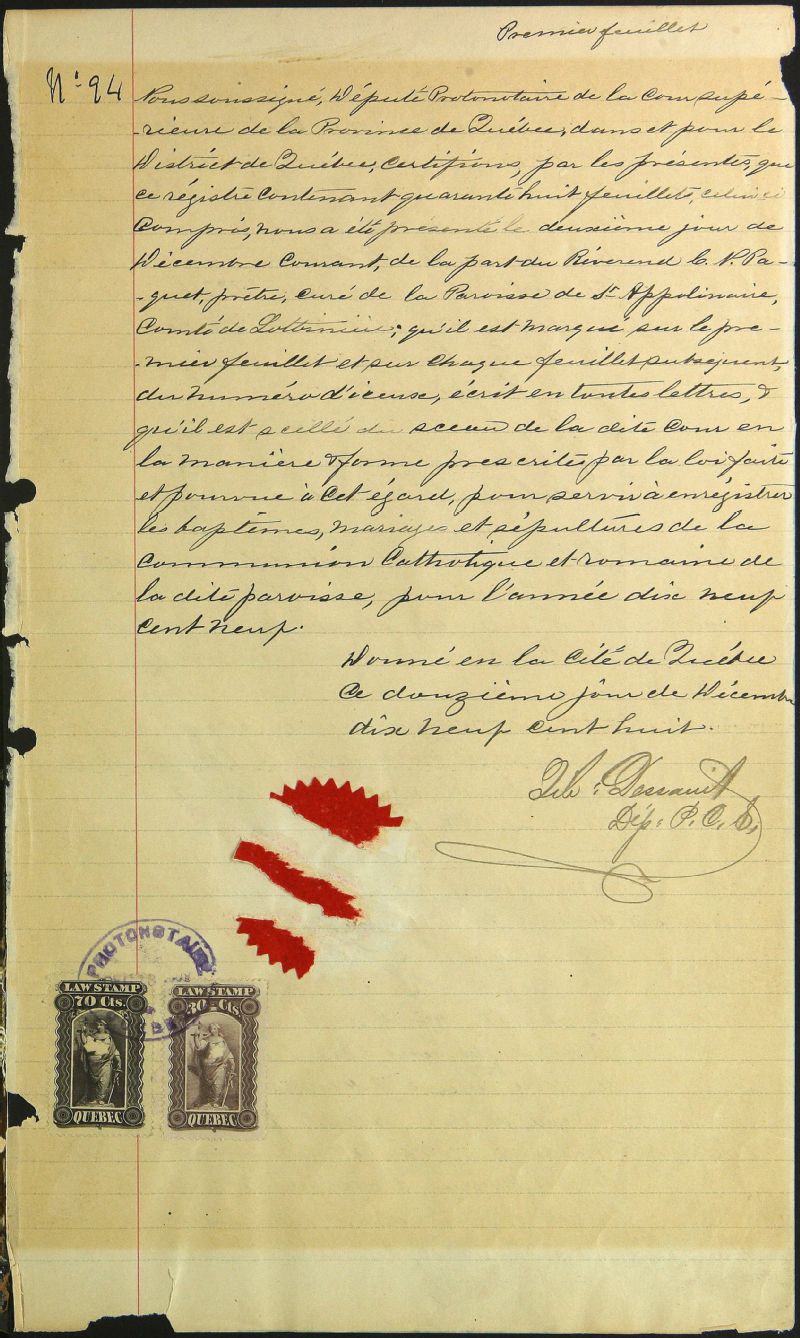 Premier feuillet
No 94
Nous soussigné, Député Protonotaire de la Cour supé-
-rieure de la Province de Québec, dans et pour le
District de Québec, certifions, par les présentes, que
ce régistre contenant quarante huit feuillets, celui ci
compris, nous a été présenté le deuxième jour de
Décembre courant, de la part du Révérend C. N. Pa-
-quet, prêtre, curé de la Paroisse de St Appolinaire,
Comté de Lotbinière; qu'il est marqué sur le pre-
-mier feuillet et sur chaque feuillet subséquent,
du numéro d'iceux, écrit en toutes lettres, &
qu'il est scellé du sceau de la dite cour en
la manière & forme prescrites par la loi faite
et pourvue à cet égard, pour servir à enrégistrer
les baptêmes, mariages et sépultures de la
communion Catholique et romaine de
la dite paroisse, pour l'année dix neuf
cent neuf.
Donné en la Cité de Québec
ce douzième jour de Décembre
dix neuf cent huit.
Dép. P. C. S.
PROTONOTAIRE
LAW STAMP
70 Cts.
QUEBEC
LAW STAMP
30 Cts.
QUEBEC